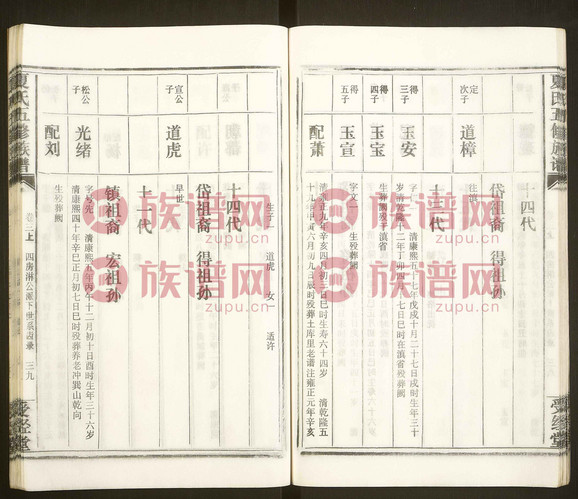 夏氏五修族谱
受经堂
十四代
岱祖裔 得祖孙
定次子
道樟
往滇
十三代
得三子
玉安
清康熙五十七年戊戌十月二十七日戌时生年三十
岁清乾隆十二年丁卯四月七日巳时在滇省殁葬阙
得四子
玉宝
生殁葬阙殁于滇省
得五子
玉宣
字文一 生殁葬阙
配萧
清雍正九年辛亥四月初一日辰时生寿六十四岁 清乾隆五
十九年甲寅六月初九日辰时殁葬土库里老谱注雍正元年辛亥
生子一 道虎 女一 适许
十四代
岱祖裔 得祖孙
宣公子
道虎
早世
十二代
镇祖裔 宏祖孙
松公子
光绪
清康熙五年丙午十二月初十日酉时生年三十六岁
清康熙四十年辛巳正月初七日巳时殁葬养老冲巽山乾向
配刘
生殁葬阙
夏氏五修族谱
卷二上 四房
三九
受经堂
族谱网
zupu.cn